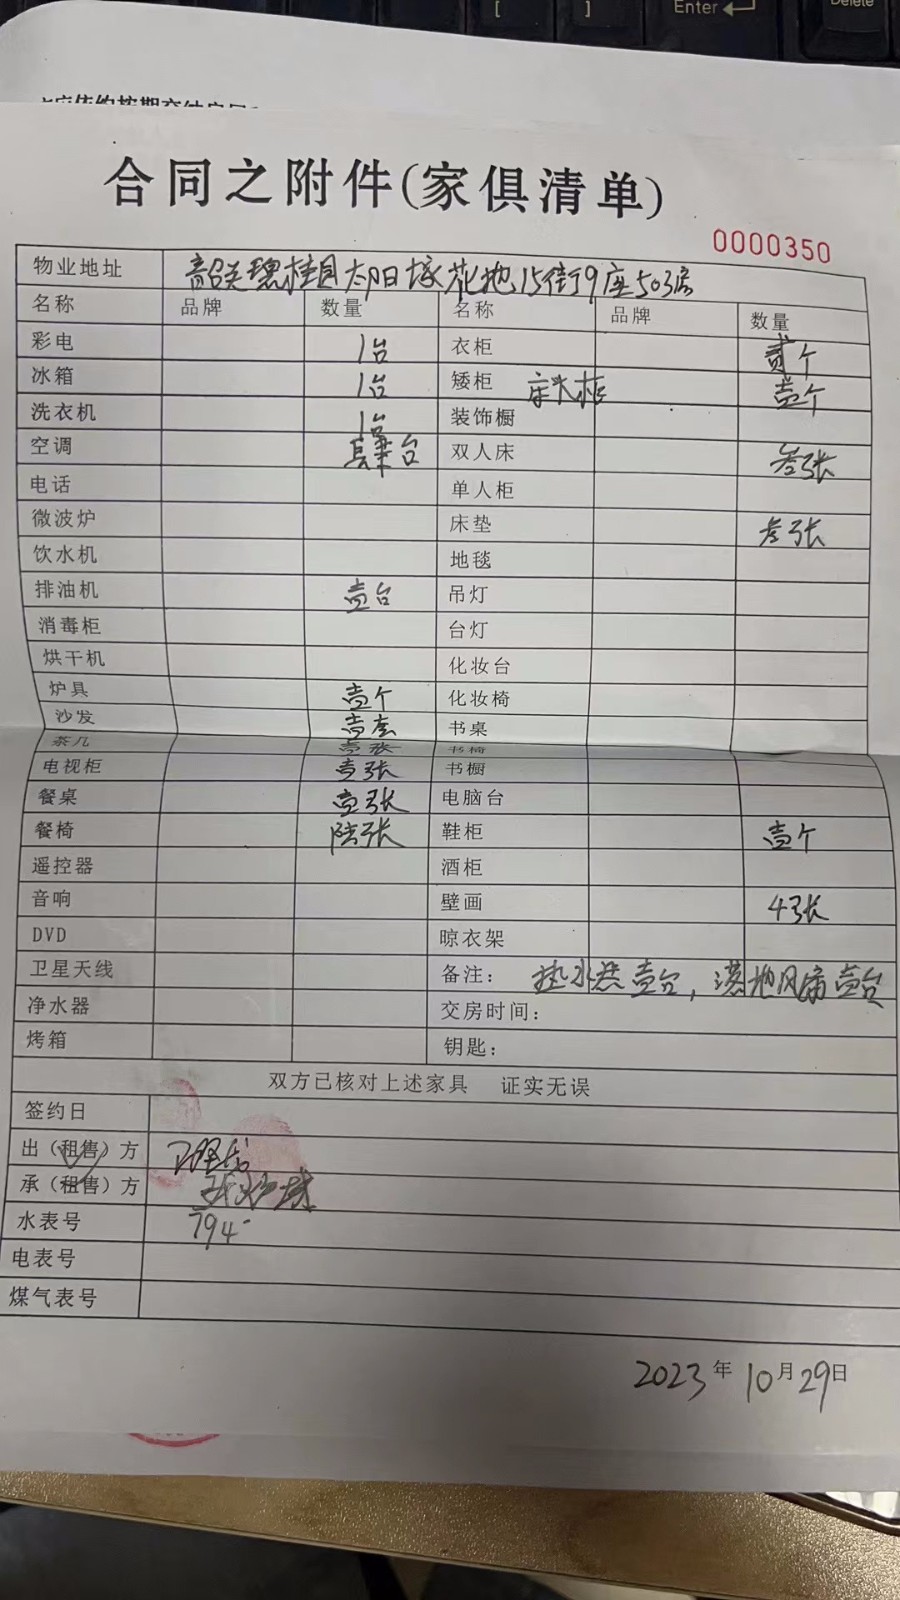 [
]
Enter
Delete
合同之附件(家俱清单)
0000350
物业地址 韶关碧桂园太阳城花地15街9座503房
名称 品牌 数量 名称 品牌 数量
彩电 1台 衣柜 贰个
冰箱 1台 矮柜 床头柜 壹个
洗衣机 1台 装饰橱
空调 肆台 双人床 叁张
电话 单人柜
微波炉 床垫 叁张
饮水机 地毯
排油机 壹台 吊灯
消毒柜 台灯
烘干机 化妆台
炉具 壹个 化妆椅
沙发 壹套 书桌
茶几 壹张 书椅
电视柜 壹张 书橱
餐桌 壹张 电脑台
餐椅 陆张 鞋柜 壹个
遥控器 酒柜
音响 壁画 4张
DVD 晾衣架
卫星天线 备注: 热水器壹台,落地风扇壹台
净水器 交房时间:
烤箱 钥匙:
双方已核对上述家具 证实无误
签约日
出(租售)方
承(租售)方
水表号 794
电表号
煤气表号
2023年10月29日